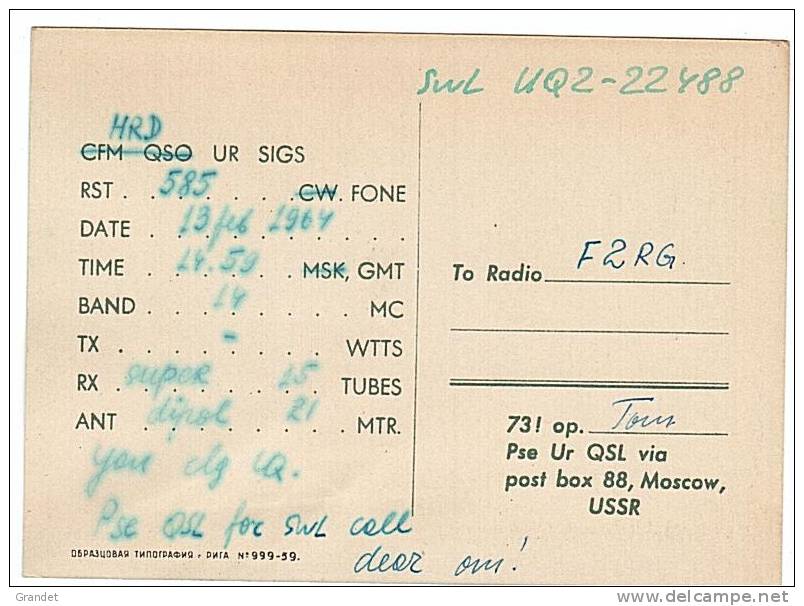 SWL UQ2-22488
HRD
CFM QSO UR SIGS
RST . 585 . . . CW. FONE
DATE . 13 feb 1964
TIME . 14.59 . . MSK, GMT
BAND . 14 . . . MC
TX . . - . . . WTTS
RX super 15 TUBES
ANT dipol 21 MTR.
you clg CQ.
Pse QSL for SWL call
dear om!
ОБРАЗЦОВАЯ ТИПОГРАФИЯ г. РИГА № 999-59.
To Radio F2RG.
73! op. Tom
Pse Ur QSL via
post box 88, Moscow,
USSR
Grandet
www.delcampe.net